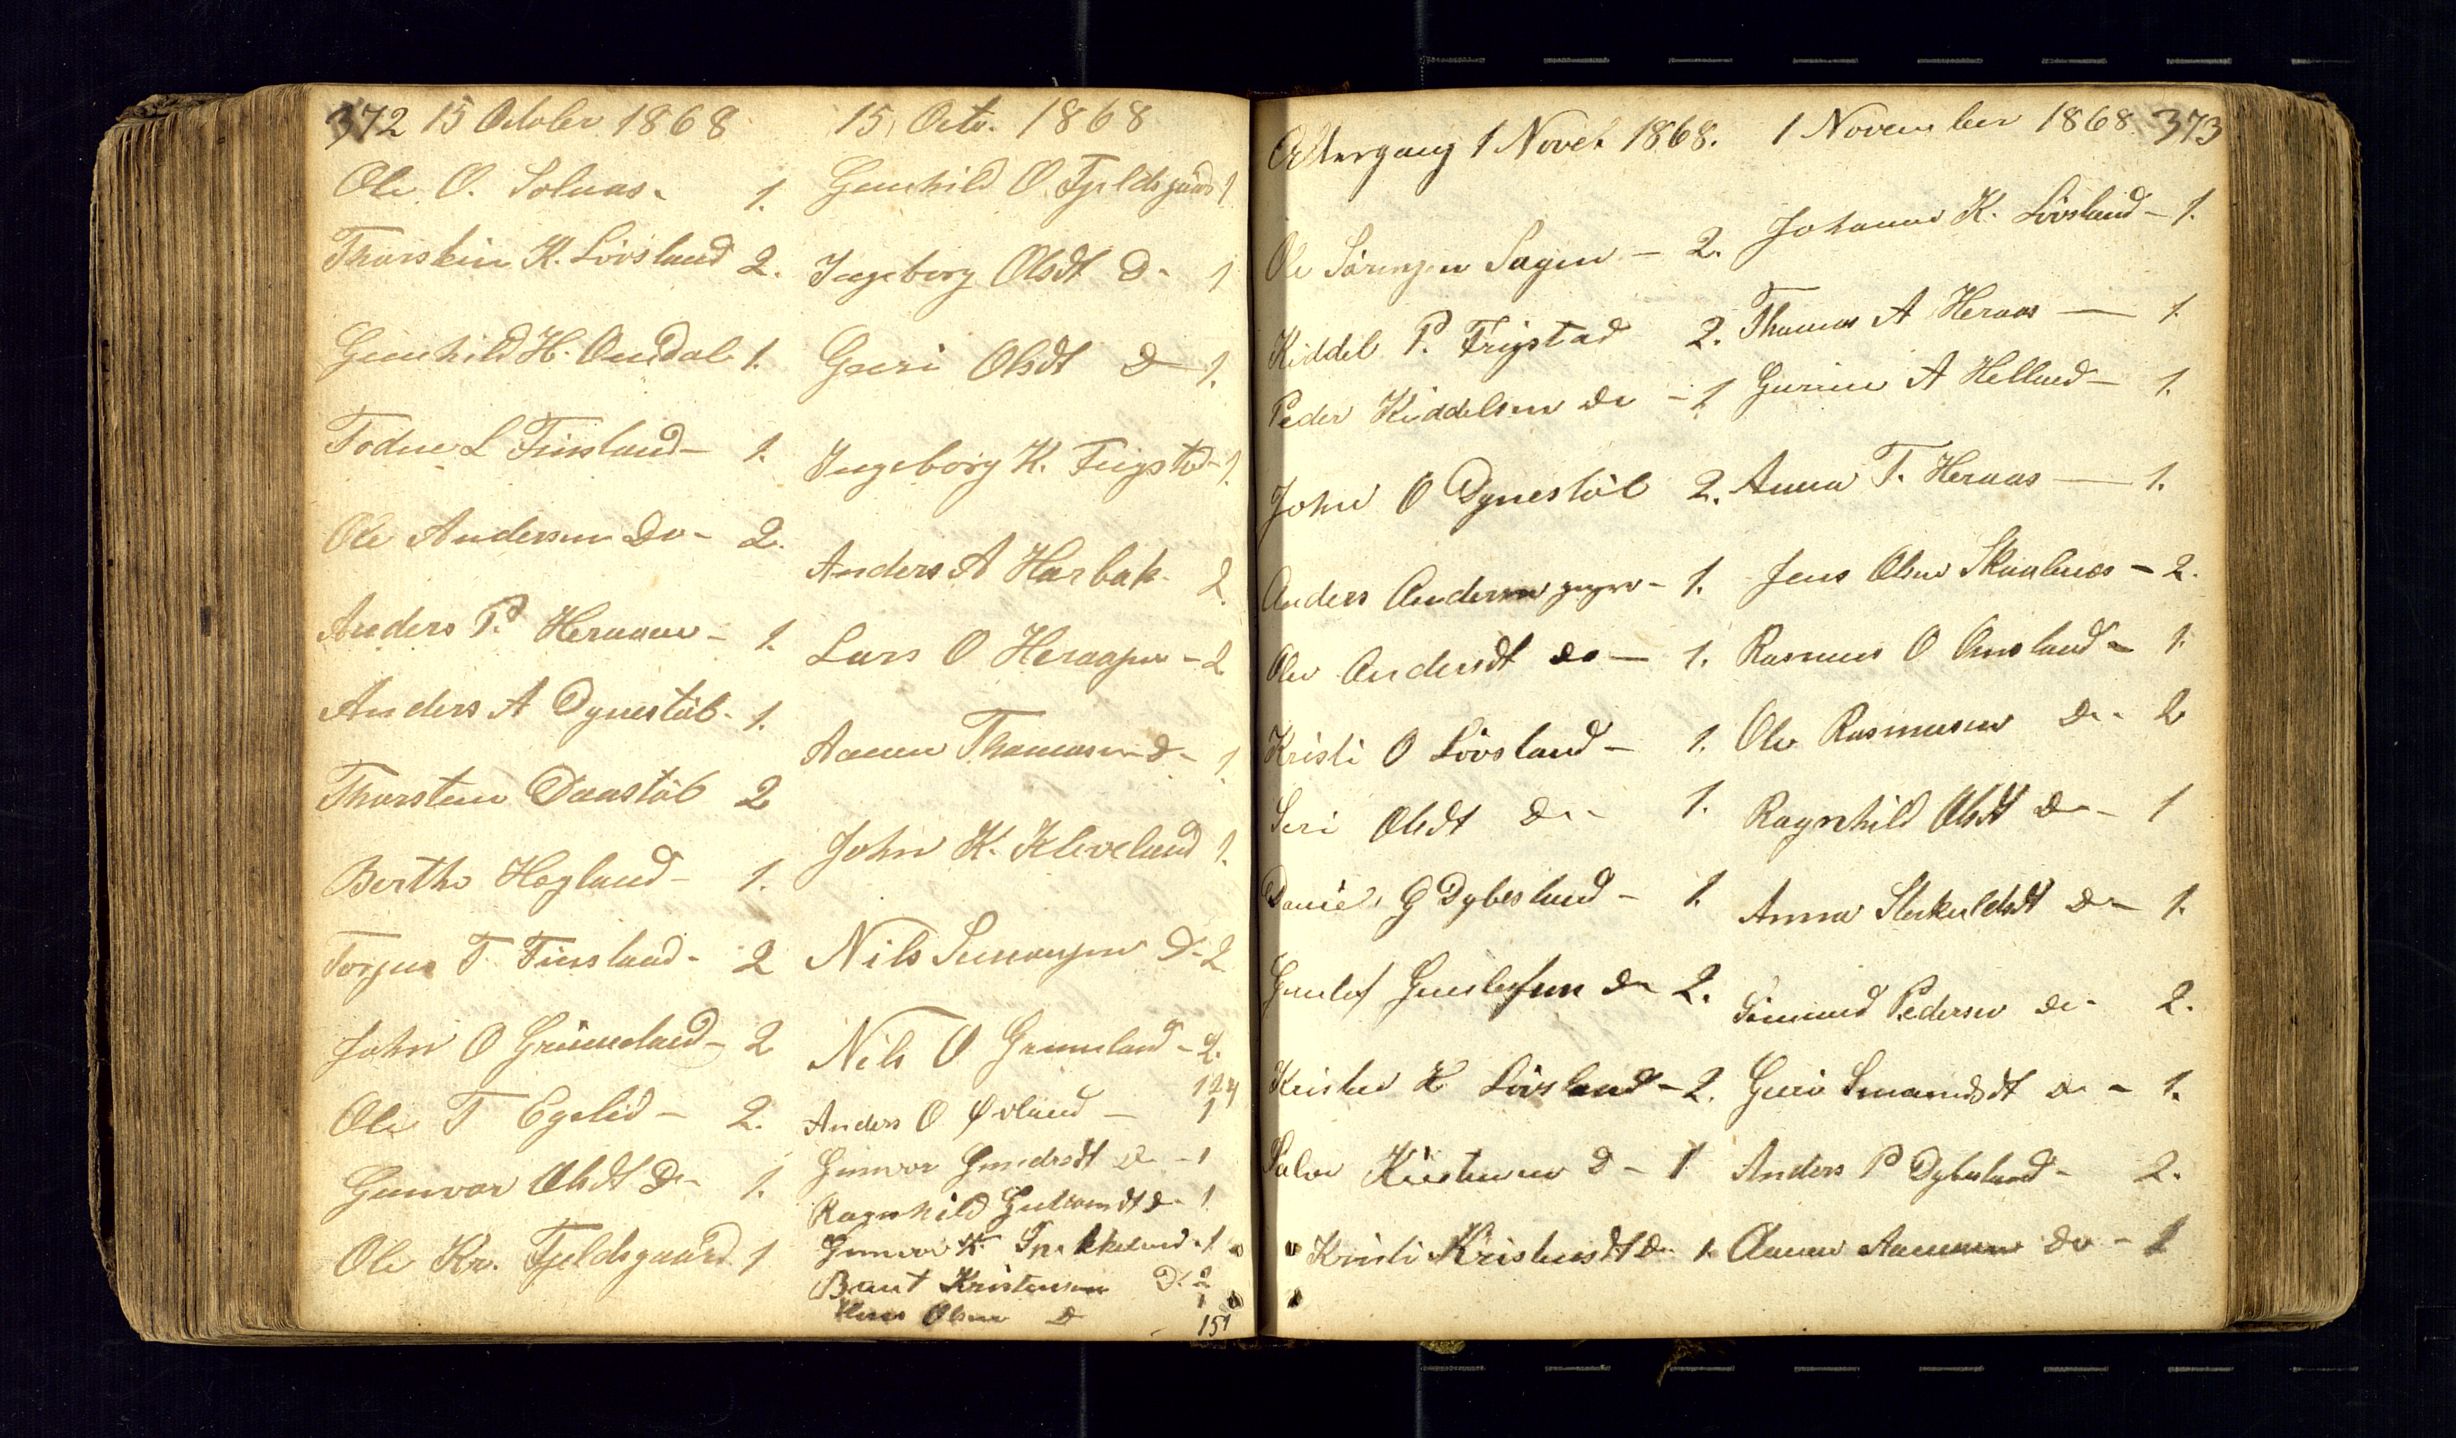 372 15 October 1868
Ole O. Solaas. 1.
Thorstein K. Lövsland 2.
Gunhild H. Omdal 1.
Todne L Finsland - 1.
Ole Andersen Do - 2.
Anders P. Heraaen - 1.
Anders A Dynestöl - 1.
Thorsten Daastöl 2
Berthe Hegland - 1.
Torjus T Finsland - 2
John O Grimeland - 2
Ole T Egelid - 2.
Gunvor Olsdt Do - 1.
Ole Kr. Fjeldsgaard 1
15, Octo. 1868
Gunhild O Fjeldsgaard 1
Ingeborg Olsdt D - 1
Guri Olsdt D 1.
Ingeborg K. Frigstad - 1.
Anders A Harbak - 2.
Lars O Heraasen - 2
Aanen Thomasen D - 1.
John K. Kleveland 1.
Nils D - 2
Nils O Grimeland - 2.
124
Anders O Øvland - 1
Gunvor D - 1
Ragnhild D - 1
Gunvor K. 1
Bent Kristensen D - 2
Olsen D 1
151
Altergang 1 Novet 1868.
Ole Sörensen Sagen - 2.
Kiddel P. Frigstad 2.
Peder Kiddelsen Do - 1
John O Dynestöl 2.
Anders Andersen - 1.
Andersdt Do - 1.
Kristi O Lövsland - 1.
Siri Olsdt D - 1.
Daniel G Dybesland - 1.
Gunlef Gunlefsen Do 2.
Kristen K Lövsland - 2.
Salve Kristensen D - 1
Kristi Kristensdt D 1.
1 November 1868. 373
Johanne K. Lövsland - 1.
Thomas A Heraas - 1.
A Helland - 1.
Anna T. Heraas - 1.
Jens Olsen - 2.
Rasmus O Omsland - 1.
Ole Rasmusen D - 2
Ragnhild Olsdt D - 1
Anna D - 1.
Pedersen D - 2.
Guri D - 1.
Anders P Dybesland - 2.
Aanen Aanensen Do - 1